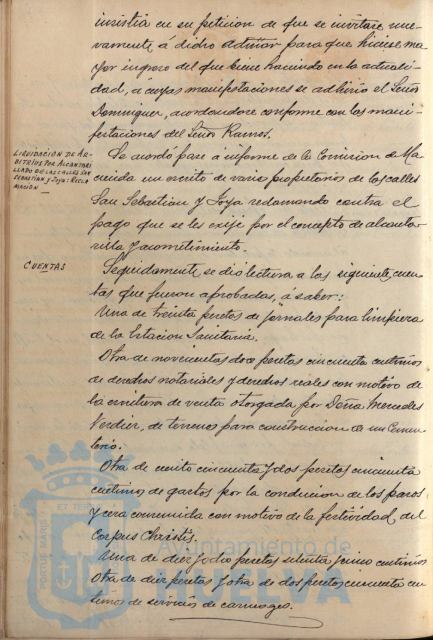 insistia en su peticion de que se invitase nue-
vamente á dicho señor para que hiciese ma-
yor ingreso del que viene haciendo en la actuali-
dad, a cuyas manifestaciones se adhirió el Señor
Dominguez, acordandose conforme con las mani-
festaciones del Señor Ramos.
LIQUIDACION DE AR-
BITRIOS POR ALCANTARI
LLADO DE LAS CALLES SAN
SEBASTIAN y Joya: RECLA
MACION
Se acordó pase a informe de la Comision de Ha-
cienda un escrito de varios propietarios de las calles
San Sebastian y Joya reclamando contra el
pago que se les exije por el concepto de alcanta-
rilla y acometimiento.
CUENTAS
Seguidamente se dió lectura a las siguientes cuen-
tas que fueron aprobadas, á saber:
Una de treinta pesetas de jornales para limpieza
de la Estacion Sanitaria.
Otra de novecientas doce pesetas cincuenta centimos
de derechos notariales y derechos reales con motivo de
la escritura de venta otorgada por Doña Mercedes
Verdier, de terrenos para construccion de un Cemen-
terio.
Otra de ciento cincuenta y dos pesetas cincuenta
centimos de gastos por la conduccion de los pasos
y cera consumida con motivo de la festividad del
Corpus Christi.
Una de diez y ocho pesetas setenta y cinco centimos
Otra de diez pesetas y otra de dos pesetas cincuenta cen-
timos de servicios de carruages.
PORTUS MARIS ET TERRE
Ayuntamiento de
HUELVA